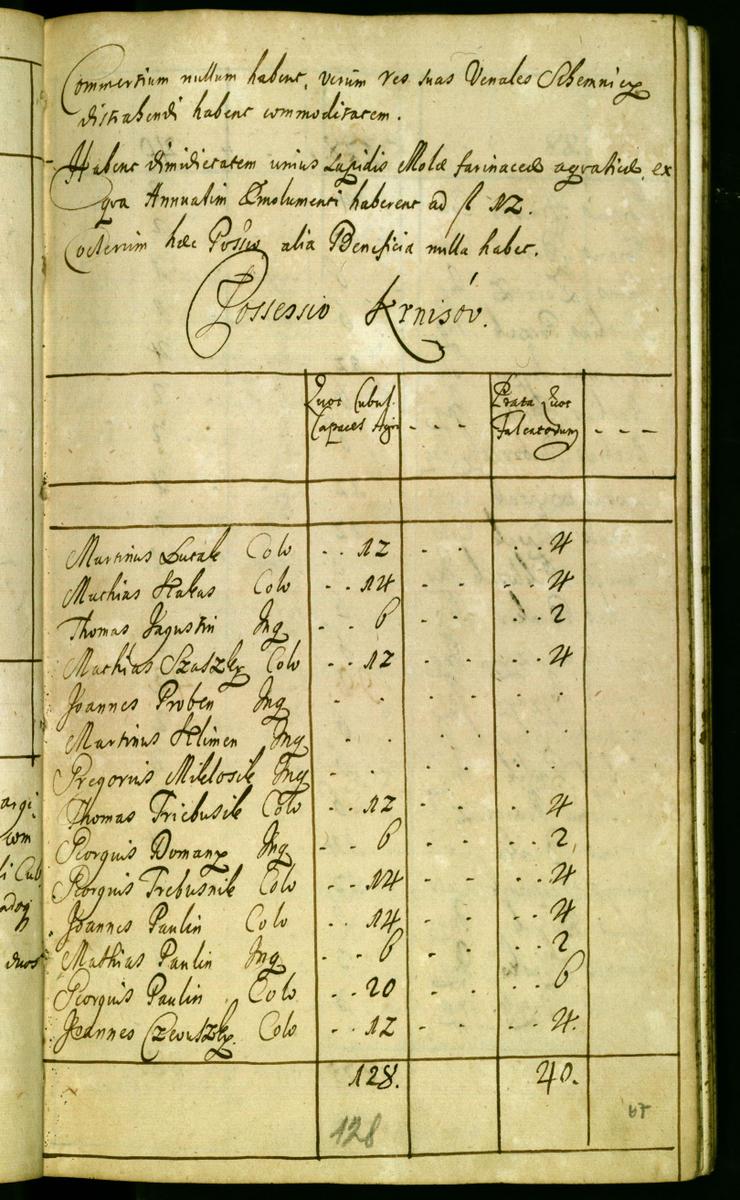 Commertium nullum habent, verum res suas Venales Schemnicy
distrahendi habent commoditatem.
Habent dimidietatem unius Lapidis Molæ farinaceæ aquaticæ, ex
qva Annuatim Emolumenti haberent ad fl 12.
Cæterum hæc Possio alia Beneficia nulla habet.
Possessio Krnisóv.
Quot Cubul. Prata Quot
Capaces Agri - - - Falcatorum - - -
Martinus Lucak Colo . . 12 . . . . 4
Mathias Hakas Colo . . 14 . . . . 4
Thomas Jagustin Inq . . 6 . . . . 2
Mathias Szaszky Colo . . 12 . . . . 4
Joannes Proben Inq . . . . . .
Martinus Klimen Inq . . . . . .
Gregorius Miklosik Inq . . . . . .
Thomas Triebusik Colo . . 12 . . . . 4
Georgius Domany Inq . . 6 . . . . 2
Georgius Trebusnik Colo . . 14 . . . . 4
Joannes Paulin Colo . . 14 . . . . 4
Mathias Paulin Inq . . 6 . . . . 2
Georgius Paulin Colo . . 20 . . . . 6
Joannes Czeuszky Colo . . 12 . . . . 4.
128. 40.
128
67
argi
com
li Cub
adog
duos